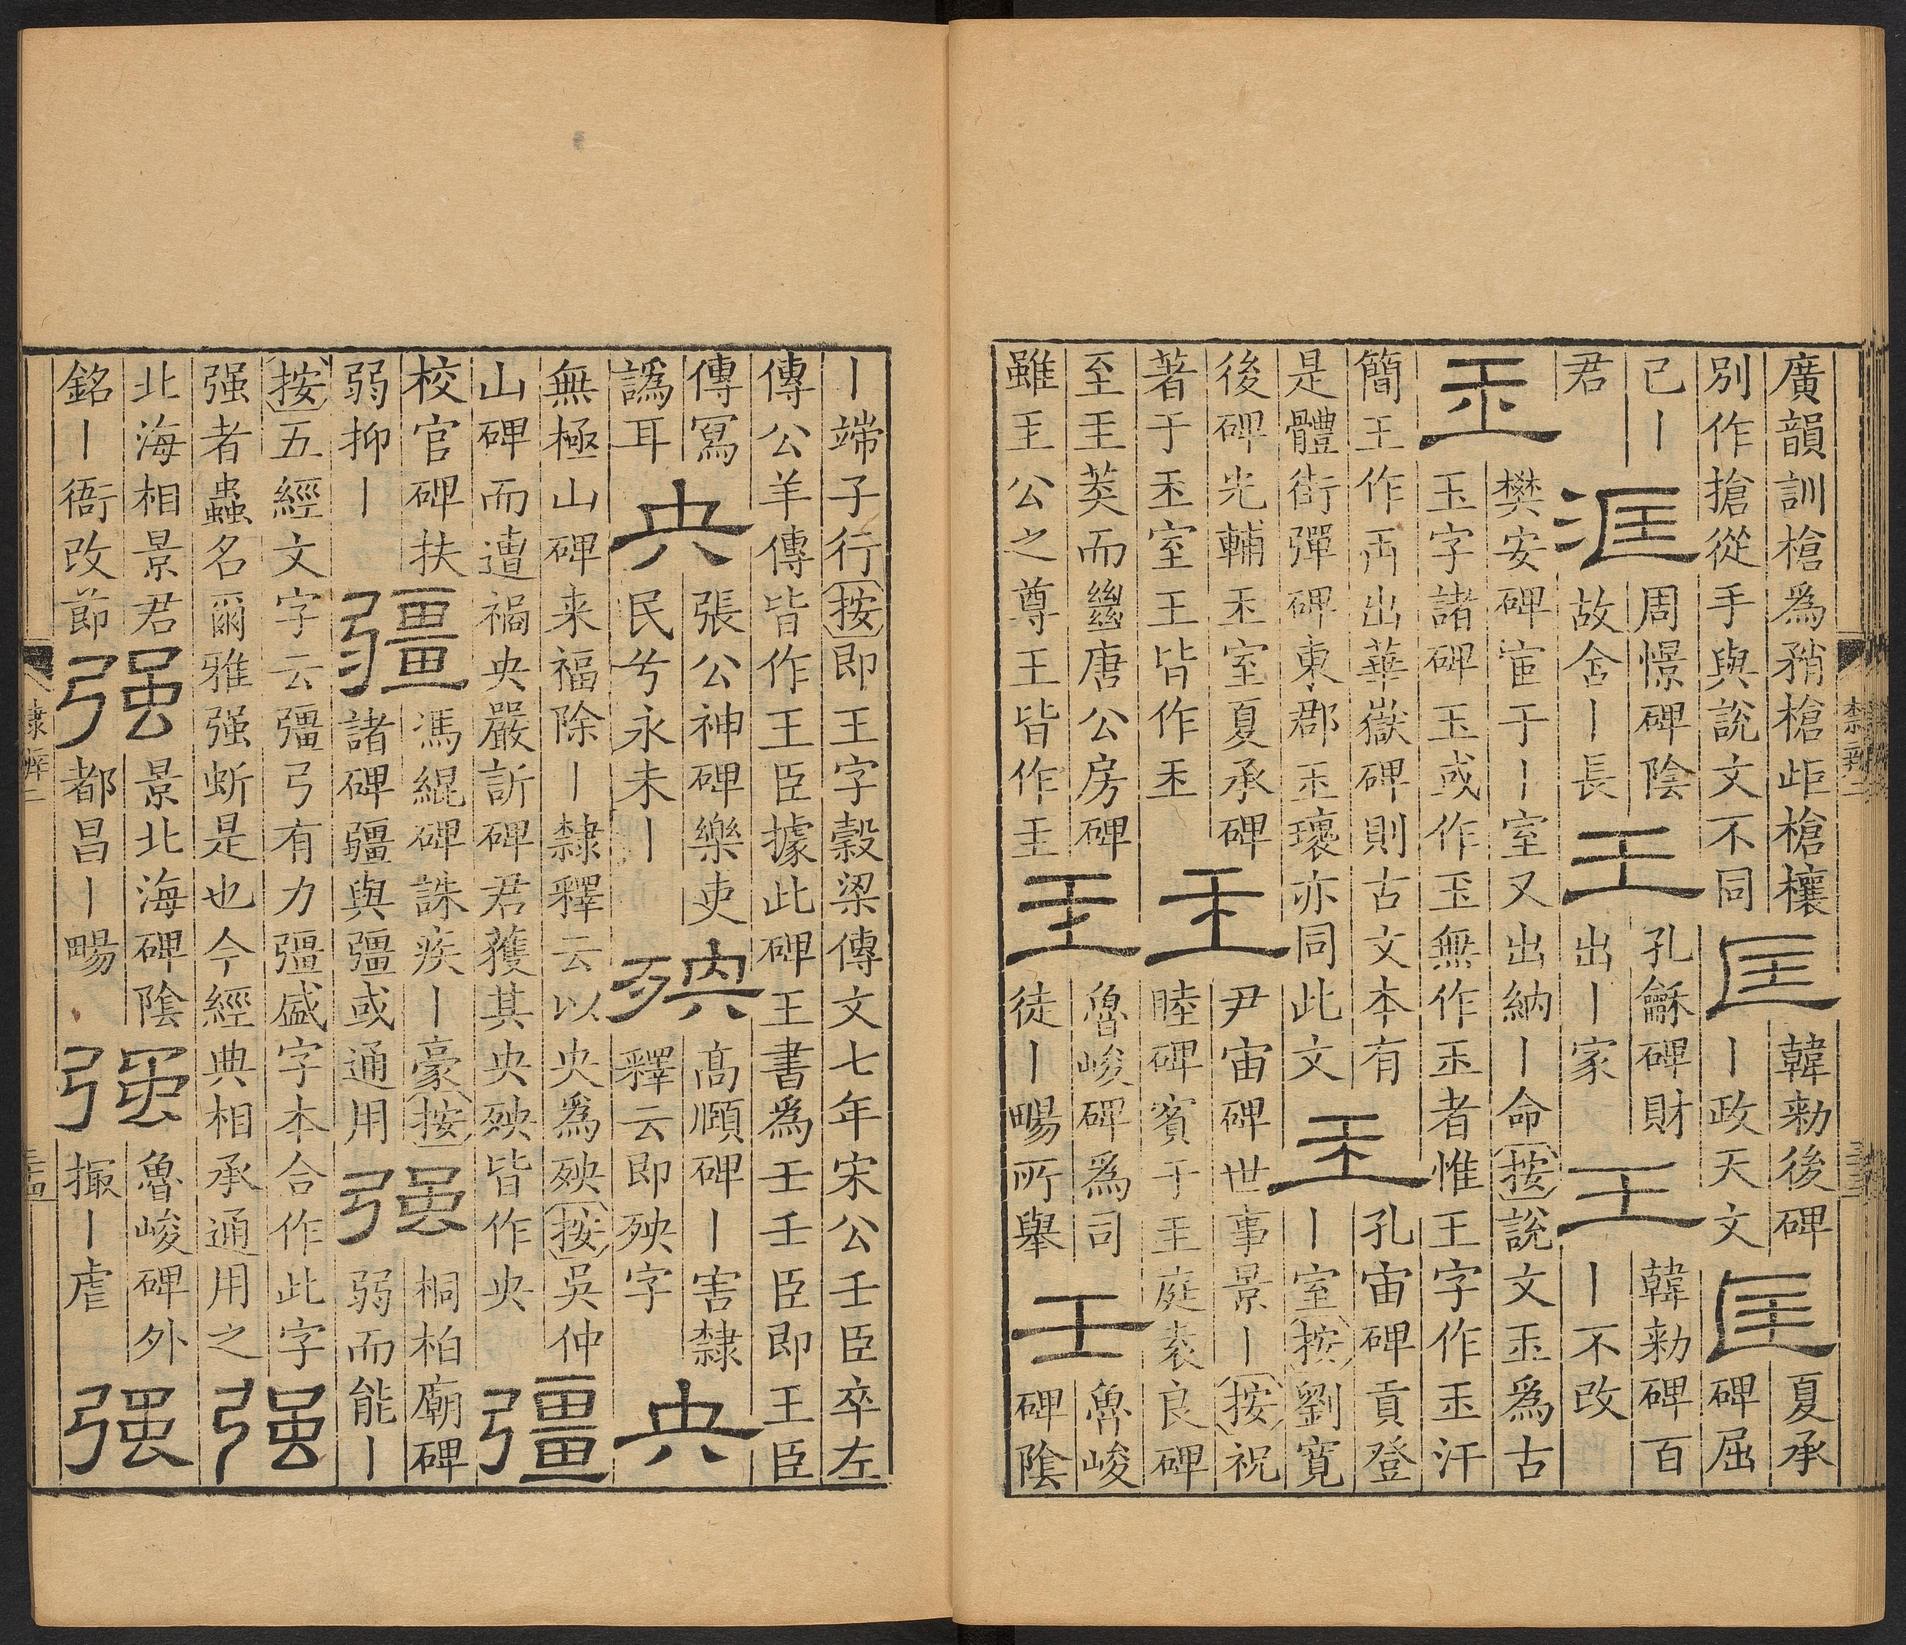 廣韻訓槍爲矟槍岠槍欀
別作搶從手與說文不同
匡
韓勑後碑
丨政天文
匡
夏承
碑屈
已丨
君
洭
周憬碑陰
故舍丨長
王
孔龢碑財
出丨家
王
韓勑碑百
丨不改
玊
樊安碑宦于丨室又出納丨命按說文玉爲古
玉字諸碑玉或作玉無作玊者惟王字作玊汗
簡王作㔽出華嶽碑則古文本有
是體街彈碑東郡玊瓌亦同此文
玊
孔宙碑貢登
丨室按劉寬
後碑光輔玊室夏承碑
著于玊室王皆作玊
王
尹宙碑世事景丨按祝
睦碑賓于王庭袁良碑
至王莽而𢇍唐公房碑
雖王公之尊王皆作王
王
魯峻碑爲司
徒丨暢所舉
壬
魯峻
碑陰
丨端子行按即王字穀梁傳文七年宋公壬臣卒左
傳公羊傳皆作王臣據此碑王書爲壬壬臣即王臣
傳寫
譌耳
央
張公神碑樂吏
民兮永未丨
殃
高順碑丨害隸
釋云即殃字
央
無極山碑来福除丨隸釋云以央爲殃按吳仲
山碑而遭禍央嚴訢碑君獲其央殃皆作央
彊
校官碑扶
弱抑丨
彊
馮緄碑誅疾丨豪按
諸碑疆與彊或通用
强
桐柏廟碑
弱而能丨
按五經文字云彊弓有力彊盛字本合作此字
强者蟲名爾雅强蚚是也今經典相承通用之
强
北海相景君
銘丨衙改節
强
景北海碑陰
都昌丨暢
强
魯峻碑外
撮丨虐
强
隸辨二